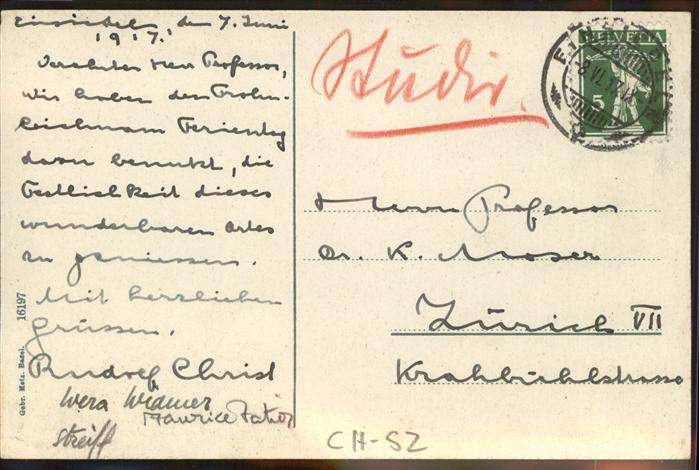 Einsiedeln den 7. Juni
1917.
Verehrter Herr Professor,
wir haben den Frohn-
leichnam Ferientag
dazu benutzt, die
Festlichkeit dieses
wunderbaren Ortes
zu geniessen.
Mit herzlichen
Grüssen.
Rudolf Christ
Wera Widmer
Maurice
Streiff
Gebr. Metz, Basel. 16197
Studir.
HELVETIA
5
Herrn Professor
Dr. K. Moser
Zürich VII
Krahbühlstrasse
CH-SZ